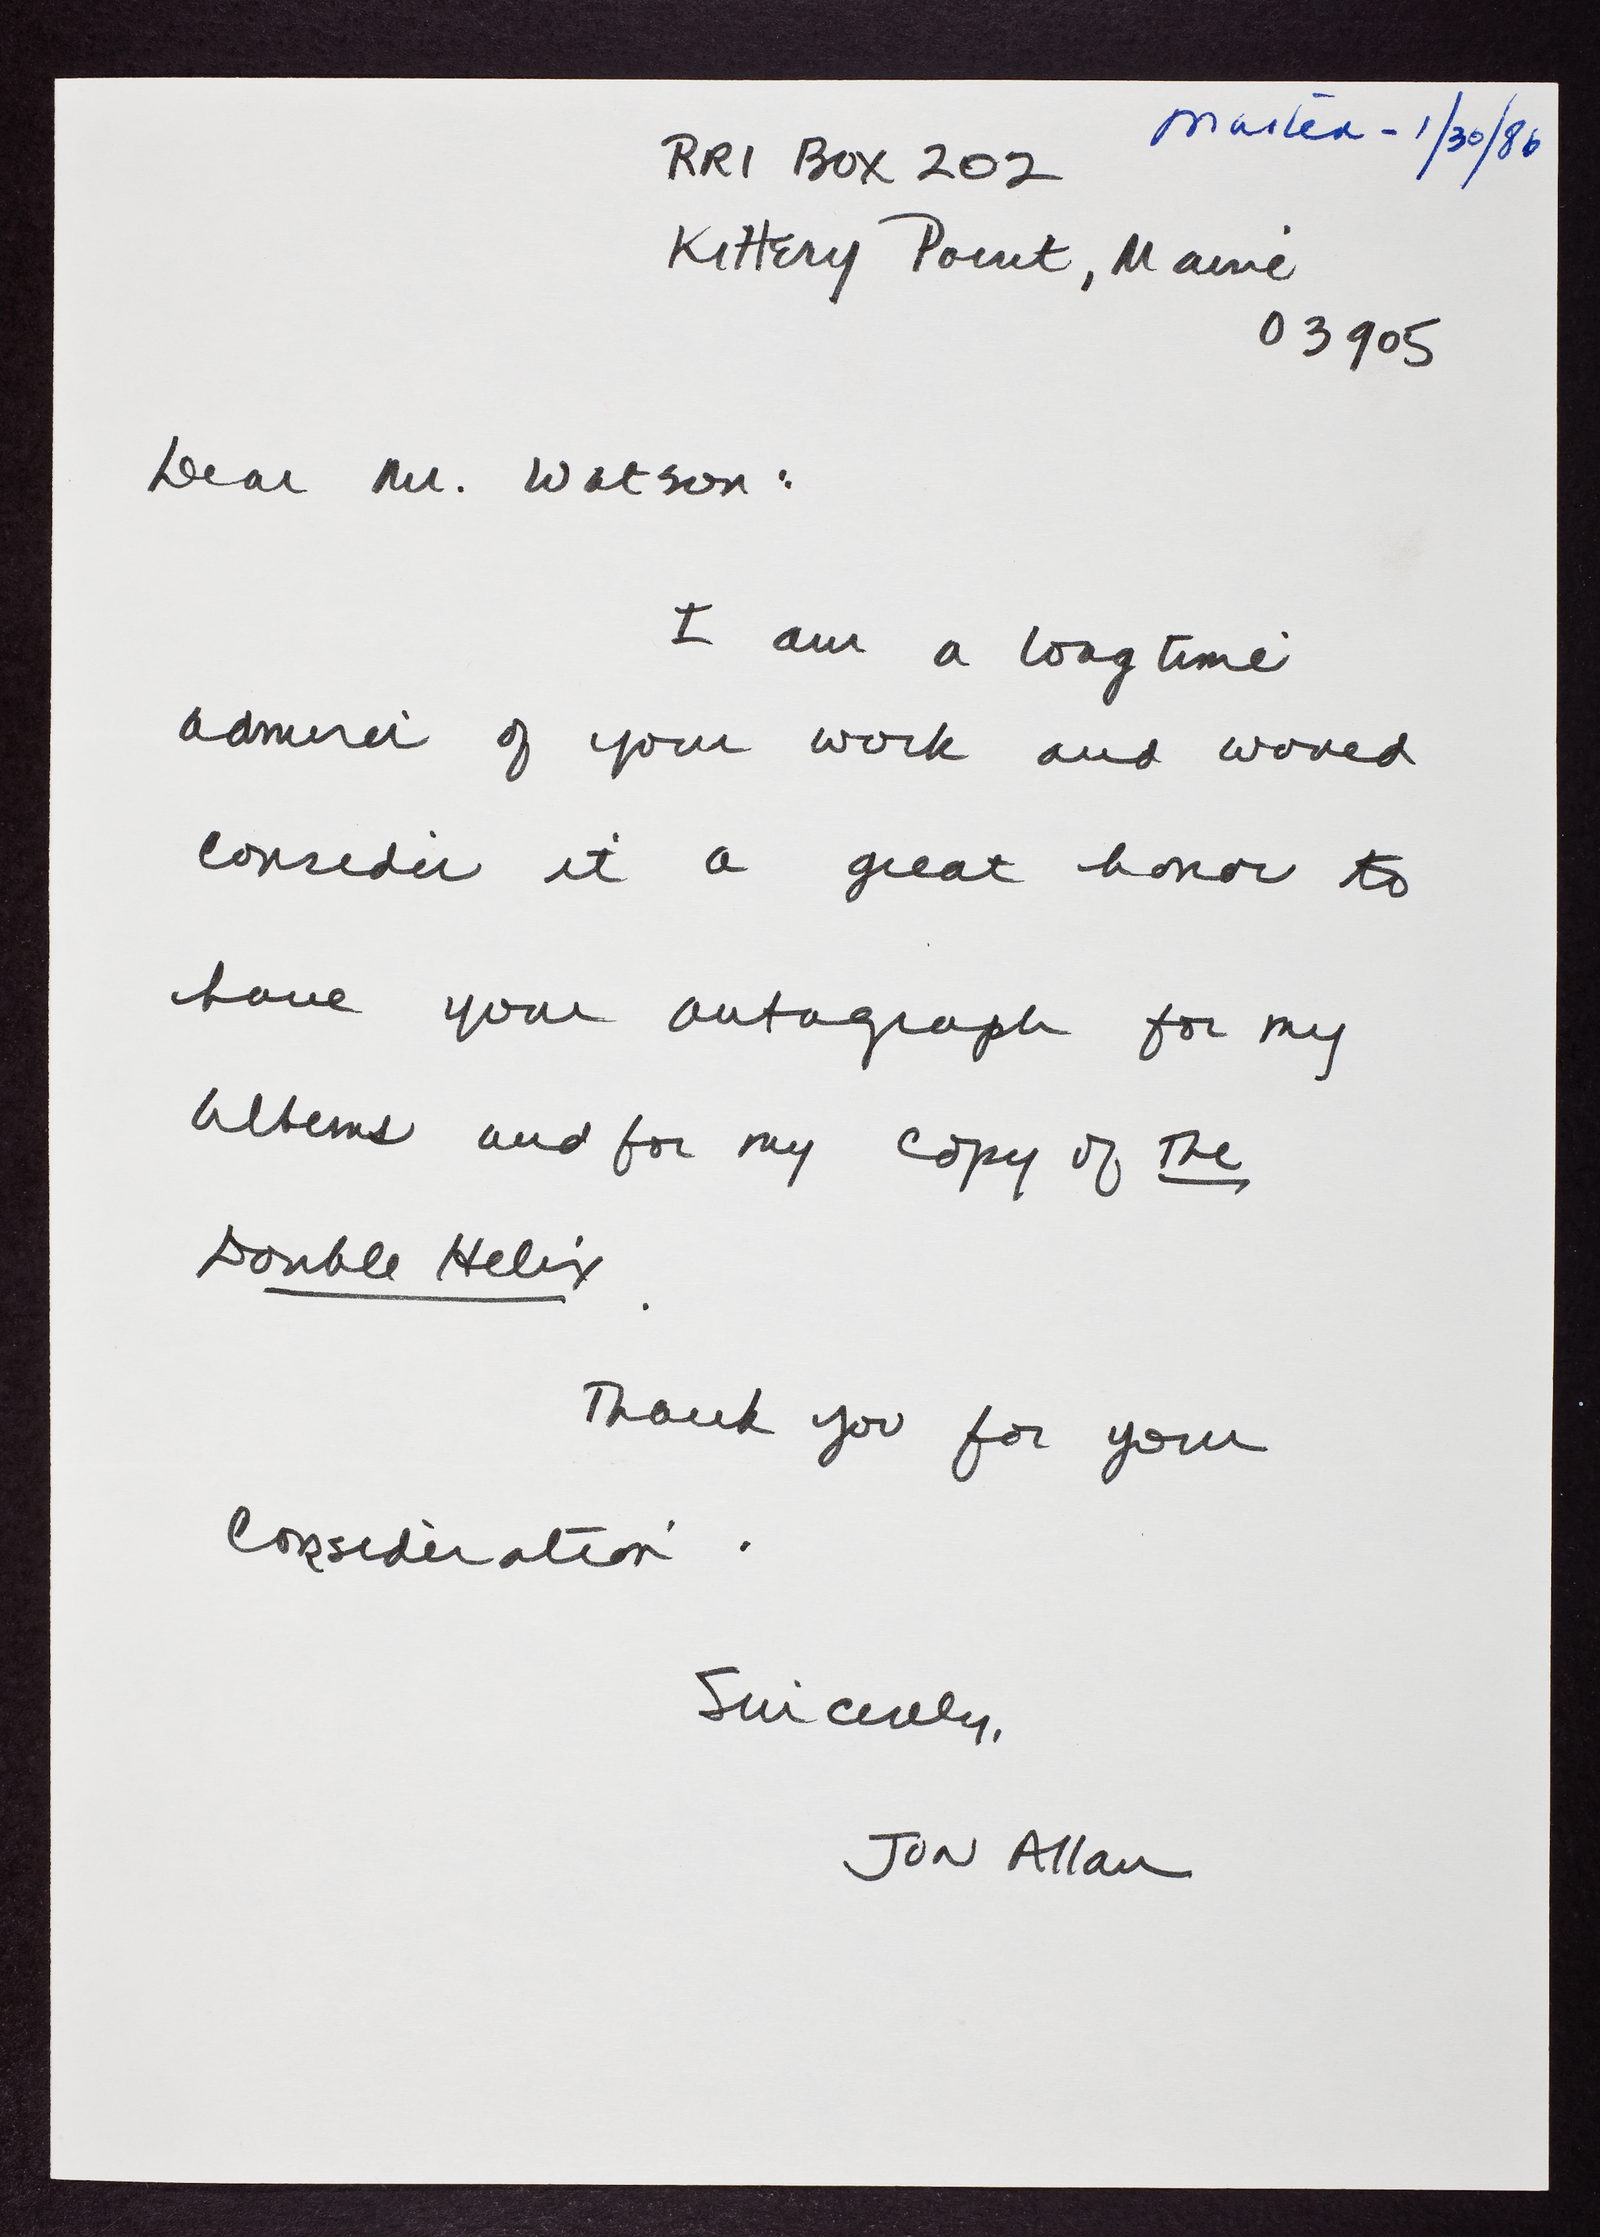 mailed - 1/30/86
RR1 Box 202
Kittery Point, Maine
03905
Dear Mr. Watson:
I am a longtime
admirer of your work and would
consider it a great honor to
have your autograph for my
albums and for my copy of The
Double Helix.
Thank you for your
consideration.
Sincerely,
Jon Allan